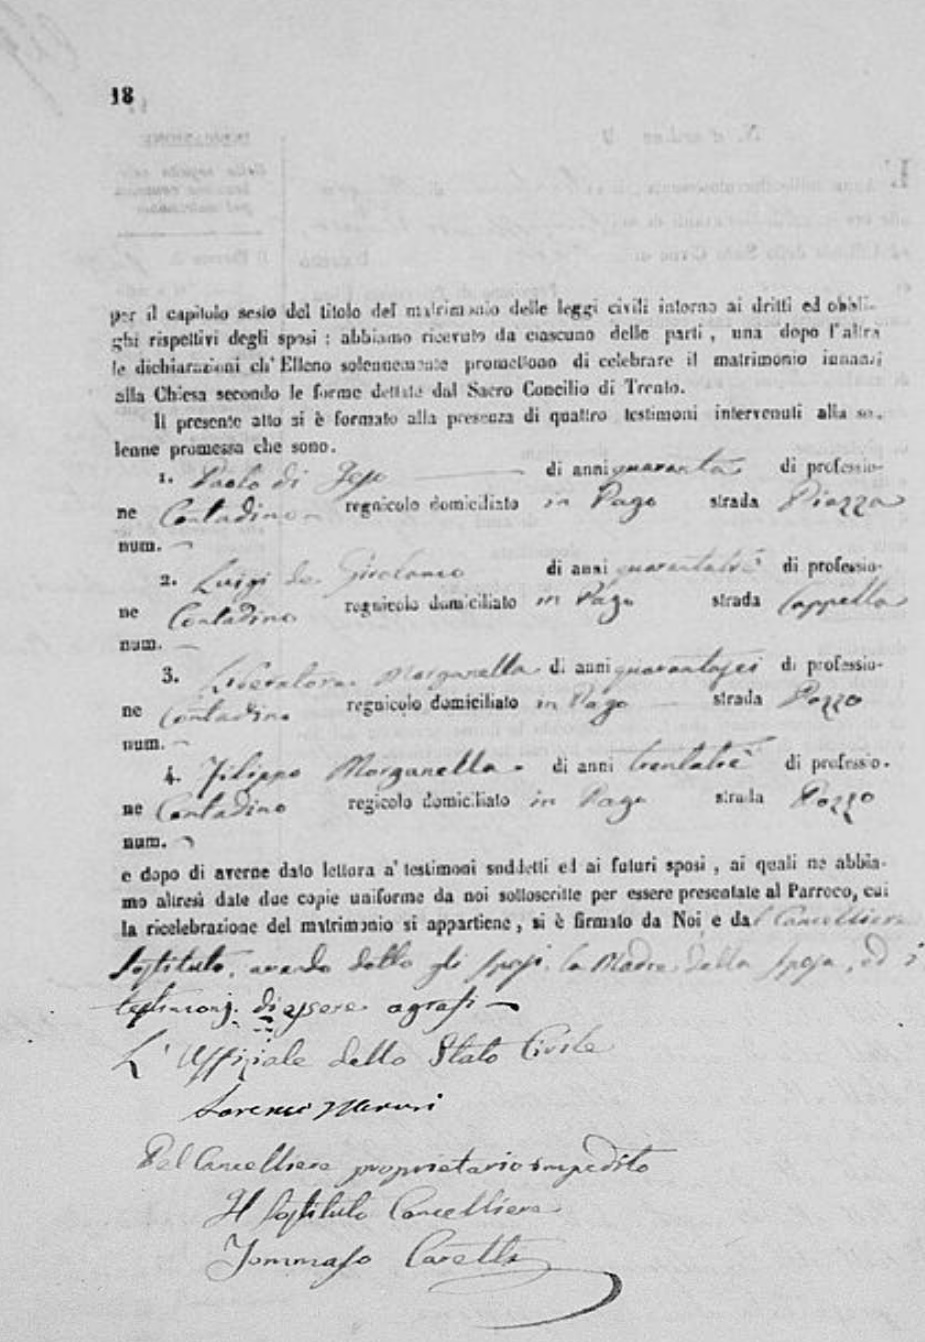 18
per il capitolo sesto del titolo del matrimonio delle leggi civili intorno ai dritti ed obbli-
ghi rispettivi degli sposi : abbiamo ricevuto da ciascuno delle parti , una dopo l'altra
le dichiarazioni ch' Elleno solennemente promettono di celebrare il matrimonio innanzi
alla Chiesa secondo le forme dettate dal Sacro Concilio di Trento.
Il presente atto si è formato alla presenza di quattro testimoni intervenuti alla so-
lenne promessa che sono.
1. Paolo di Jeso di anni quaranta di professio-
ne Contadino regnicolo domiciliato in Pago strada Piazza
num. —
2. Luigi de Girolamo di anni quarantatrè di professio-
ne Contadino regnicolo domiciliato in Pago strada Cappella
num. —
3. Liberatore Morganella di anni quarantasei di professio-
ne Contadino regnicolo domiciliato in Pago — strada Pozzo
num. —
4. Filippo Morganella di anni trentatrè di professio-
ne Contadino regicolo domiciliato in Pago strada Pozzo
num. —
e dopo di averne dato lettura a' testimoni suddetti ed ai futuri sposi , ai quali ne abbia-
mo altresì date due copie uniforme da noi sottoscritte per essere presentate al Parroco, cui
la ricelebrazione del matrimonio si appartiene , si è firmato da Noi e dal Cancelliere
Sostituto, avendo detto gli sposi, la Madre della sposa, ed i
testimonj di essere agrafi —
L' Uffiziale dello Stato Civile
Lorenzo
Pel Cancelliere proprietario impedito
Il Sostituto Cancelliere
Tommaso Caretti